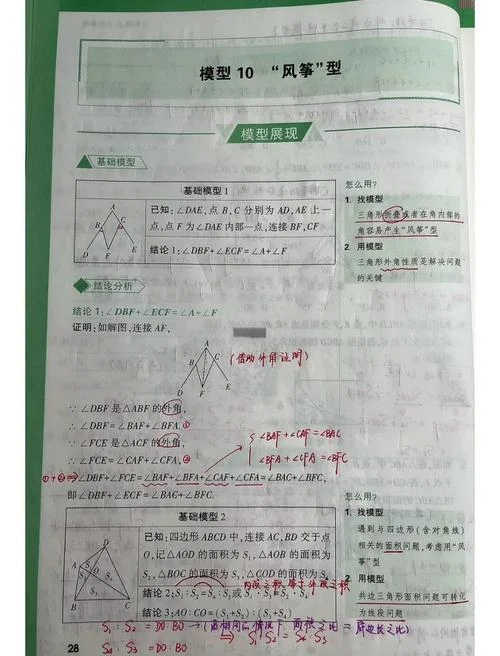 模型 10 “风筝”型
模型展现
基础模型
基础模型 1
A
B
C
D
F
E
已知:∠DAE,点 B,C 分别为 AD,AE 上一
点,点 F 为∠DAE 内部一点,连接 BF,CF
结论 1:∠DBF+∠ECF=∠A+∠F
怎么用?
1. 找模型
三角形折叠或者在角内部的
角容易产生“风筝”型
2. 用模型
三角形外角性质是解决问题
的关键
结论分析
结论 1:∠DBF+∠ECF=∠A+∠F
证明:如解图,连接 AF,
A
B
C
D
F
E
(借助外角证明)
∵ ∠DBF 是△ABF 的外角,
∴ ∠DBF=∠BAF+∠BFA. ①
∵ ∠FCE 是△ACF 的外角,
∴ ∠FCE=∠CAF+∠CFA, ②
∠BAF+∠CAF=∠BAC
∠BFA+∠CFA=∠BFC
①+② ∴∠DBF+∠FCE=∠BAF+∠BFA+∠CAF+∠CFA=∠BAC+∠BFC,
即∠DBF+∠ECF=∠BAC+∠BFC.
基础模型 2
D
A
S₁
S₂
O
S₃
S₄
B
C
已知:四边形 ABCD 中,连接 AC,BD 交于点
O,记△AOD 的面积为 S₁,△AOB 的面积为
S₂,△BOC 的面积为 S₃,△COD 的面积为 S₄
结论 2:S₁:S₂=S₄:S₃或 S₁·S₃=S₂·S₄
结论 3:AO:CO=(S₁+S₂):(S₃+S₄)
怎么用?
1. 找模型
遇到与四边形(含对角线)
相关的面积问题,考虑用“风
筝”型
2. 用模型
共边三角形面积问题可转化
为线段问题
S₁:S₂=DO:BO
S₄:S₃=DO:BO
⇒ S₁:S₂=S₄:S₃
28